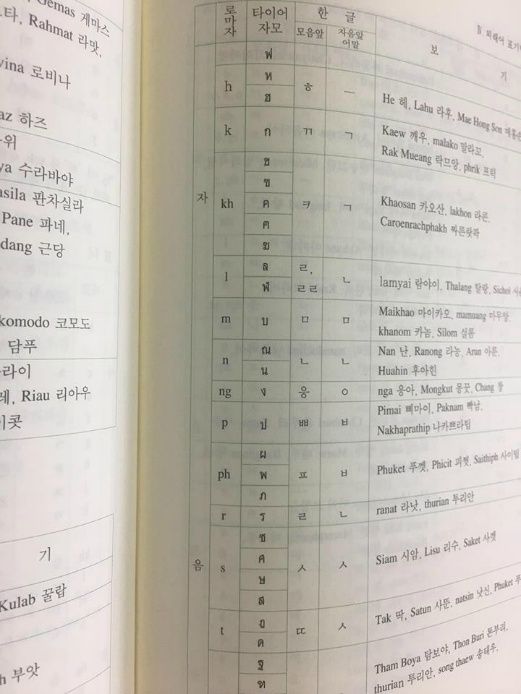 Gemas 게마스
Rahmat 라맛,
vina 로비나
az 하즈
ya 수라바야
asila 판차실라
Pane 파네,
dang 근당
komodo 코모도
담푸
라이
Riau 리아우
기
Kulab 꿀랍
h 부앗
B. 외래어 표기
로마자 타이어 자모 한 글 보 기
모음앞 자음앞 어말
자
음
ฟ
h ห ฮ ㅎ ㅡ He 헤, Lahu 라후, Mae Hong Son
k ก ㄲ ㄱ Kaew 깨우, malako 말라꼬,
Rak Mueang 락므앙, phrik 프릭
kh ข ฃ ค ฅ ฆ ㅋ ㄱ Khaosan 카오산, lakhon 라콘,
Caroenrachphakh 짜른랏팍
l ล ฬ ㄹ, ㄹㄹ ㄴ lamyai 람야이, Thalang 탈랑, Sichol
m ㅁ ㅁ Maikhao 마이카오, mamuang 마무앙,
khanom 카놈, Silom 실롬
n ณ น ㄴ ㄴ Nan 난, Ranong 라농, Arun 아룬,
Huahin 후아힌
ng ง 응 ㅇ nga 응아, Mongkut 몽꿋, Chang 창
p ป ㅃ ㅂ Pimai 삐마이, Paknam 빡남,
Nakhaprathip 나카쁘라팁
ph ผ พ ภ ㅍ ㅂ Phuket 푸껫, Phicit 피찟, Saithiph 사이팁
r ร ㄹ ㄴ ranat 라낫, thurian 투리안
s ซ ศ ษ ส ㅅ ㅅ Siam 시암, Lisu 리수, Saket 사껫
t ต ㄸ ㅅ Tak 딱, Satun 사뚠, natsin 낫신, Phuket 푸
ฐ ฑ Tham Boya 탐보야, Thon Buri 톤부리,
thurian 투리안, song thaew 송태우,